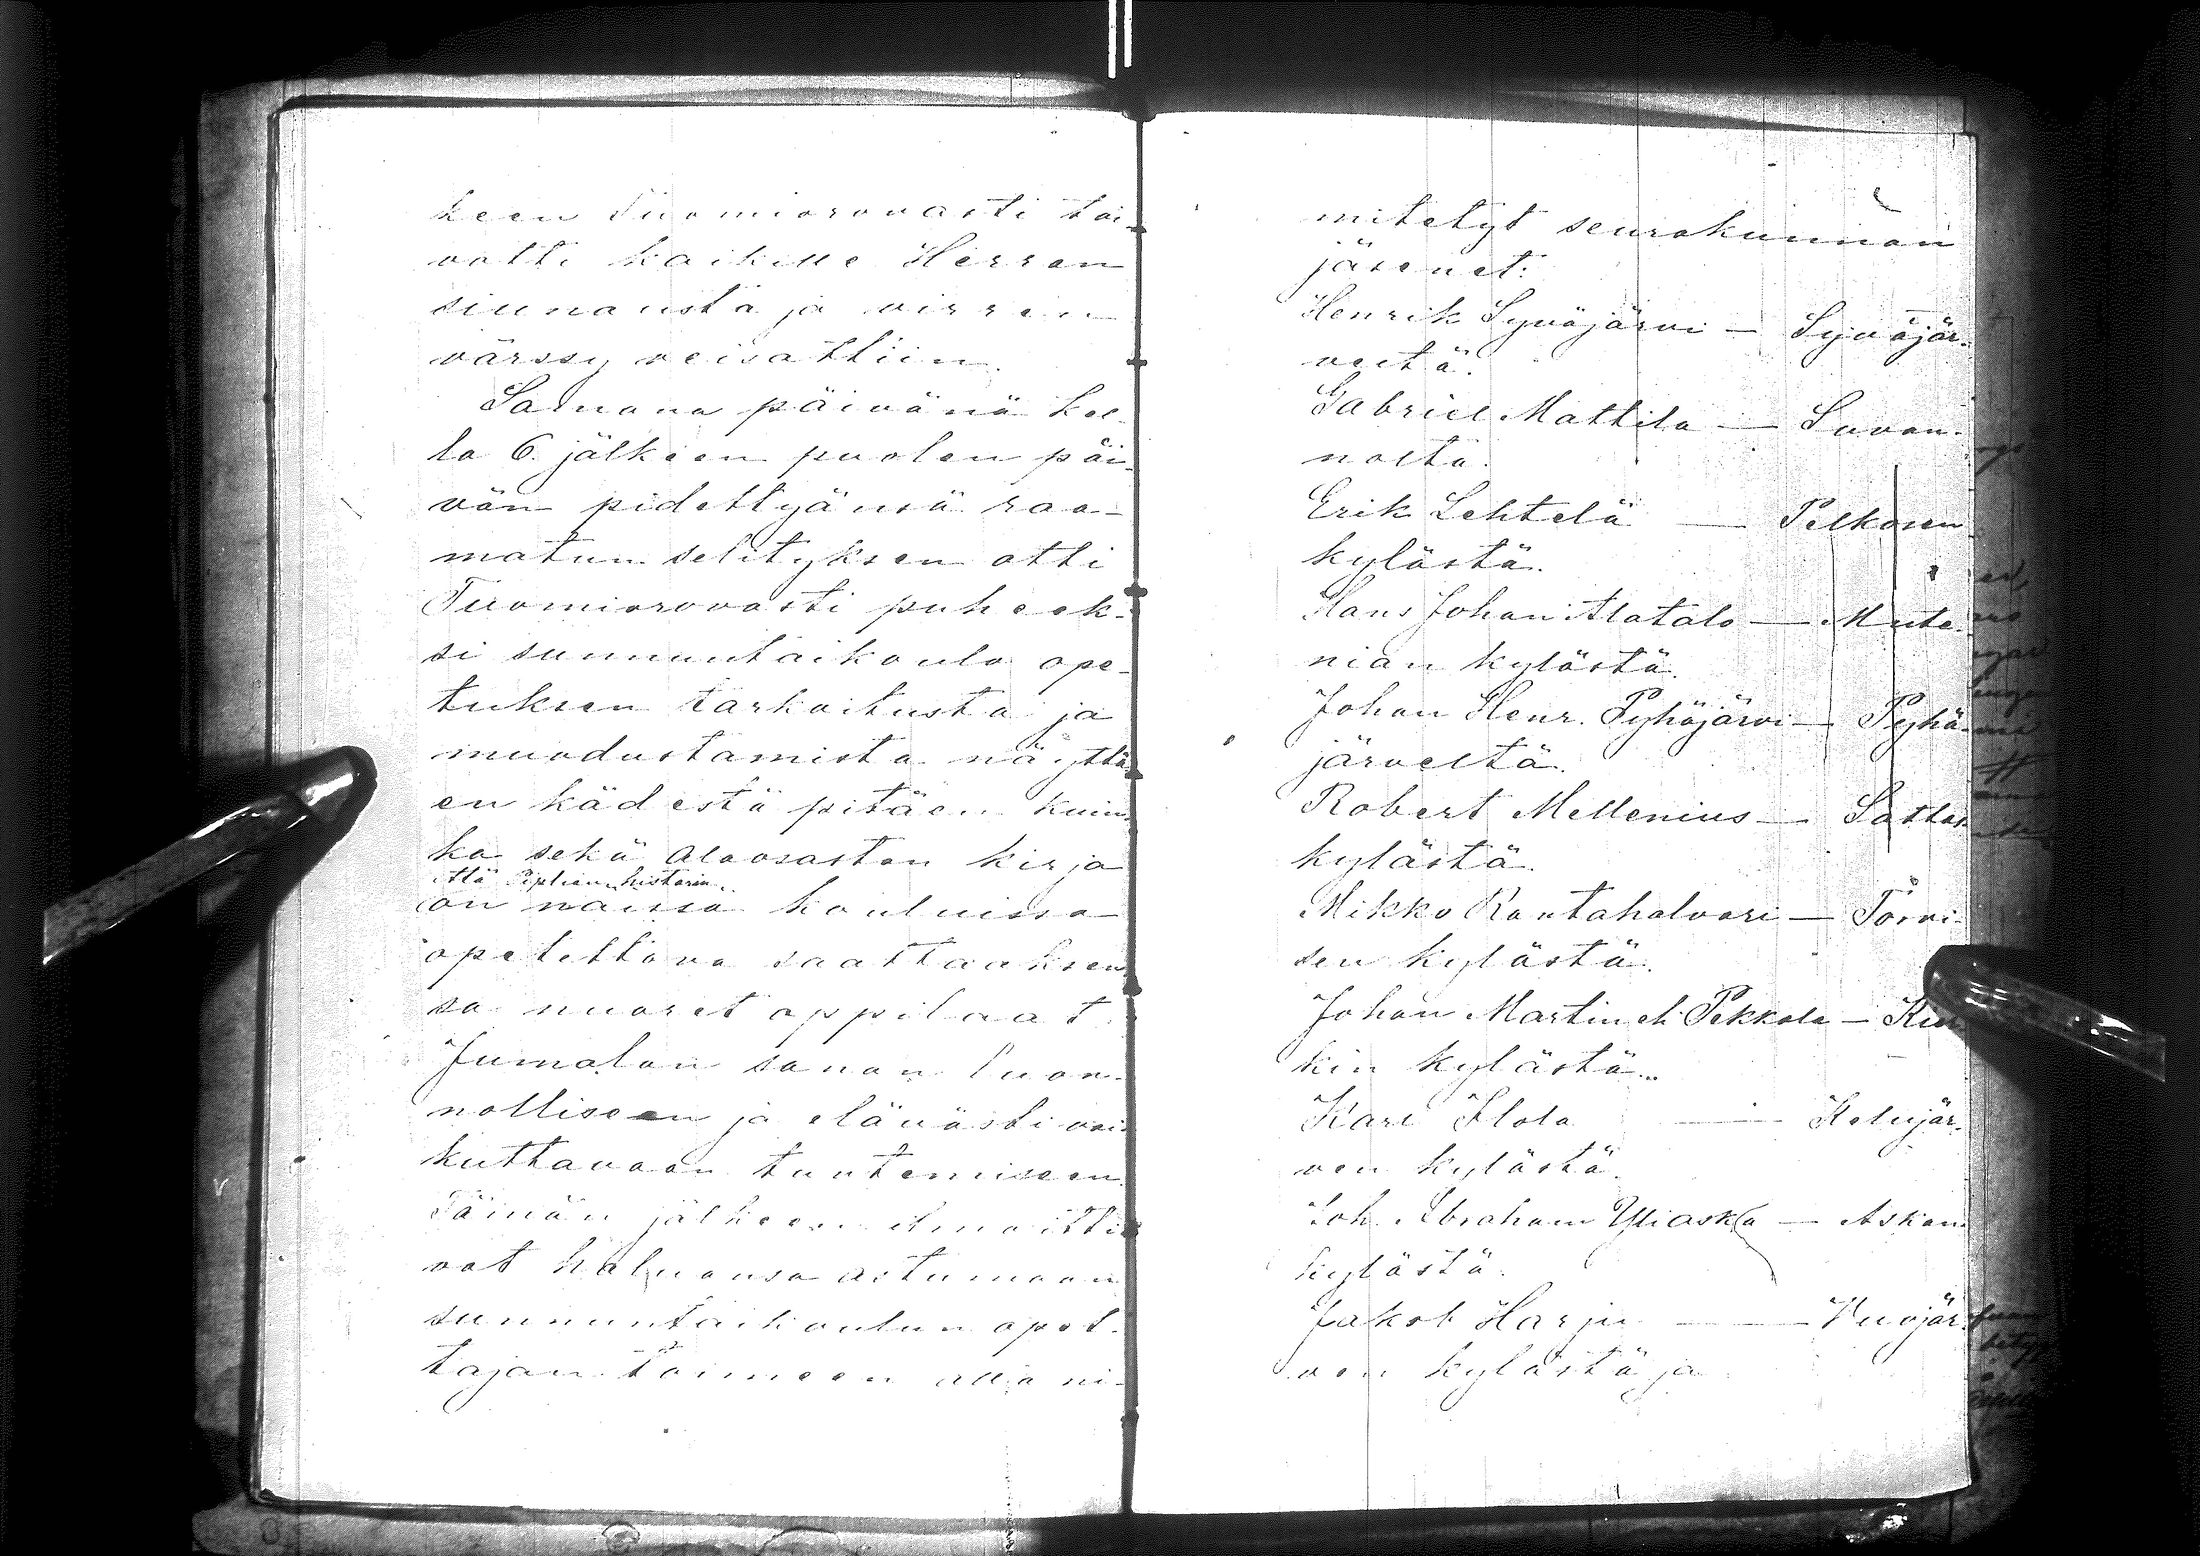 keen Tuomiorovasti toi-
votti kaikille Herran
siunausta ja virren
värssy veisattiin.
Samana päivänä kel-
lo 6. jälkeen puolen päi-
vän pidettyänsä raa-
matun selityksen otti
Tuomiorovasti puheek-
si sunnuntaikoulu ope-
tuksen tarkoitusta ja
muodustamista näyttä-
en kädestä pitäen kuin-
ka sekä Alaosaston kirja
että Piplian historia
on näissä kouluissa
opetettava saattaaksen-
sa nuoret oppilaat
Jumalan sanan luon-
nolliseen ja elävästi vai-
kuttavaan tuntemiseen.
Tämän jälkeen ilmoitti-
vat halunsa astumaan
sunnuntaikoulun opet-
tajan toimeen alla ni-
mitetyt seurakunnan
jäsenet:
Henrik Syväjärvi — Syväjär-
veltä.
Gabriel Mattila — Suvan-
nolta.
Erik Lehtelä — Pelkosen
kylästä.
Hans Johan Alatalo — Mute-
nian kylästä.
Johan Henr. Pyhäjärvi — Pyhä-
järveltä.
Robert Mellenius — Sattas
kylästä.
Mikko Rautahalvari — Torvi-
sen kylästä.
Johan Martin Pekkala —
kin kylästä.
Karl Ilola — Kelujär-
ven kylästä.
Joh. Abraham Yliaska — Askan
kylästä.
Jakob Harju — Vuojär-
ven kylästä ja